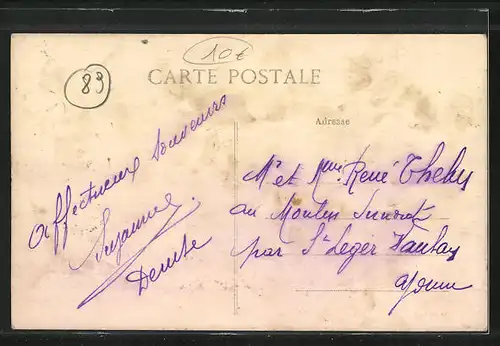 10€
83
CARTE POSTALE
Adresse
Affectueux Souvenirs
Suzanne
Denise
Mr et Mme René
au Moulin
par St Léger Vauban
Yonne